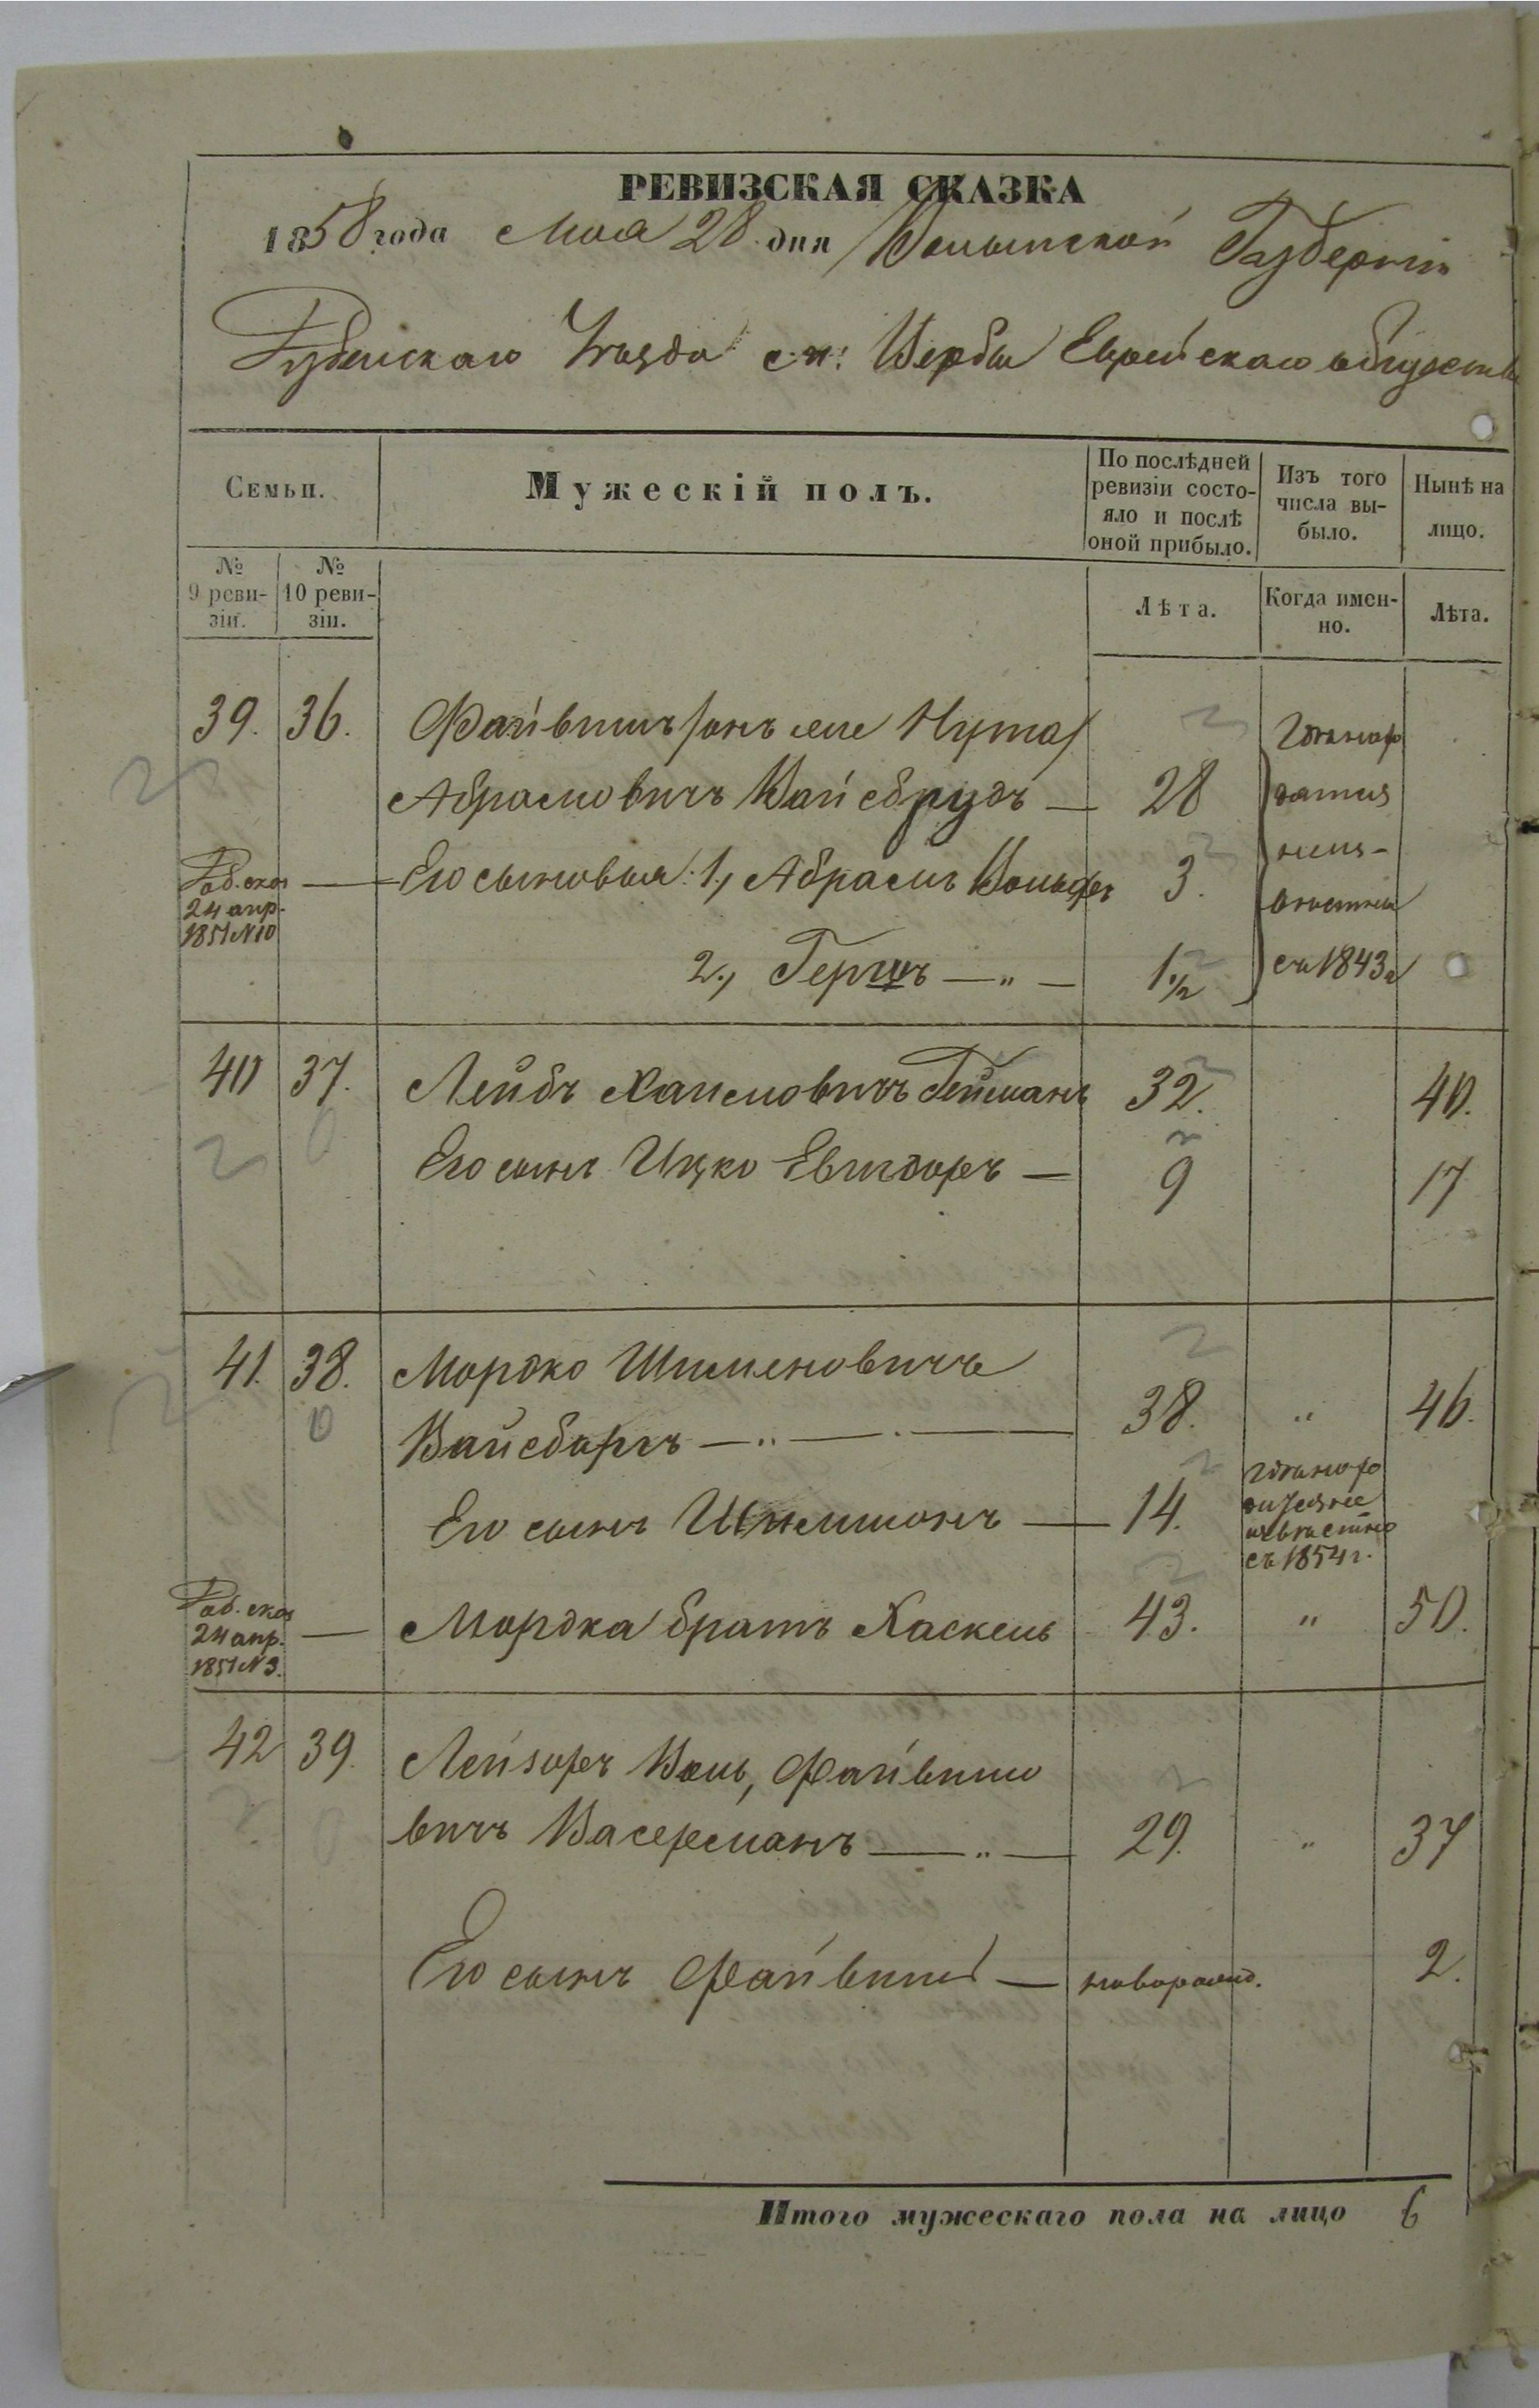 РЕВИЗСКАЯ СКАЗКА
1858 года Мая 28 дня Волынской Губернiи
Дубенскаго Уѣзда с.н. Вербы Еврейскаго общества
Семьи.
Мужескiй полъ.
По послѣдней ревизiи состо-
яло и послѣ
оной прибыло.
Изъ того
числа вы-
было.
Нынѣ на
лицо.
№
9 реви-
зiи.
№
10 реви-
зiи.
Лѣта.
Когда имен-
но.
Лѣта.
39. 36. Файвишъ /онъ же Нута/
Абрамовичъ Вайсбрудъ — 28
Его сыновья: 1., Абрамъ Вольфъ 3.
24 апр.
1851 N10
2., Гершъ — „ — 1 1/2
съ 1843 г
40 37. Лейбъ Хаимовичъ Гейманъ 32. 40.
Его сынъ Ицко Евигдоръ — 9 17
41. 38. Мордко Шименовичъ
Вайсбаргъ — „ — . — 38. „ 46.
Его сынъ Шимшонъ — 14.
съ 1854 г.
24 апр.
1851 N 3.
— Мордка братъ Хаскель 43. „ 50.
42 39. Лейзоръ Вель, Файвишо
вичъ Васерманъ — „ — 29. „ 37
Его сынъ Файвишъ — новорожд. 2.
Итого мужескаго пола на лицо 6